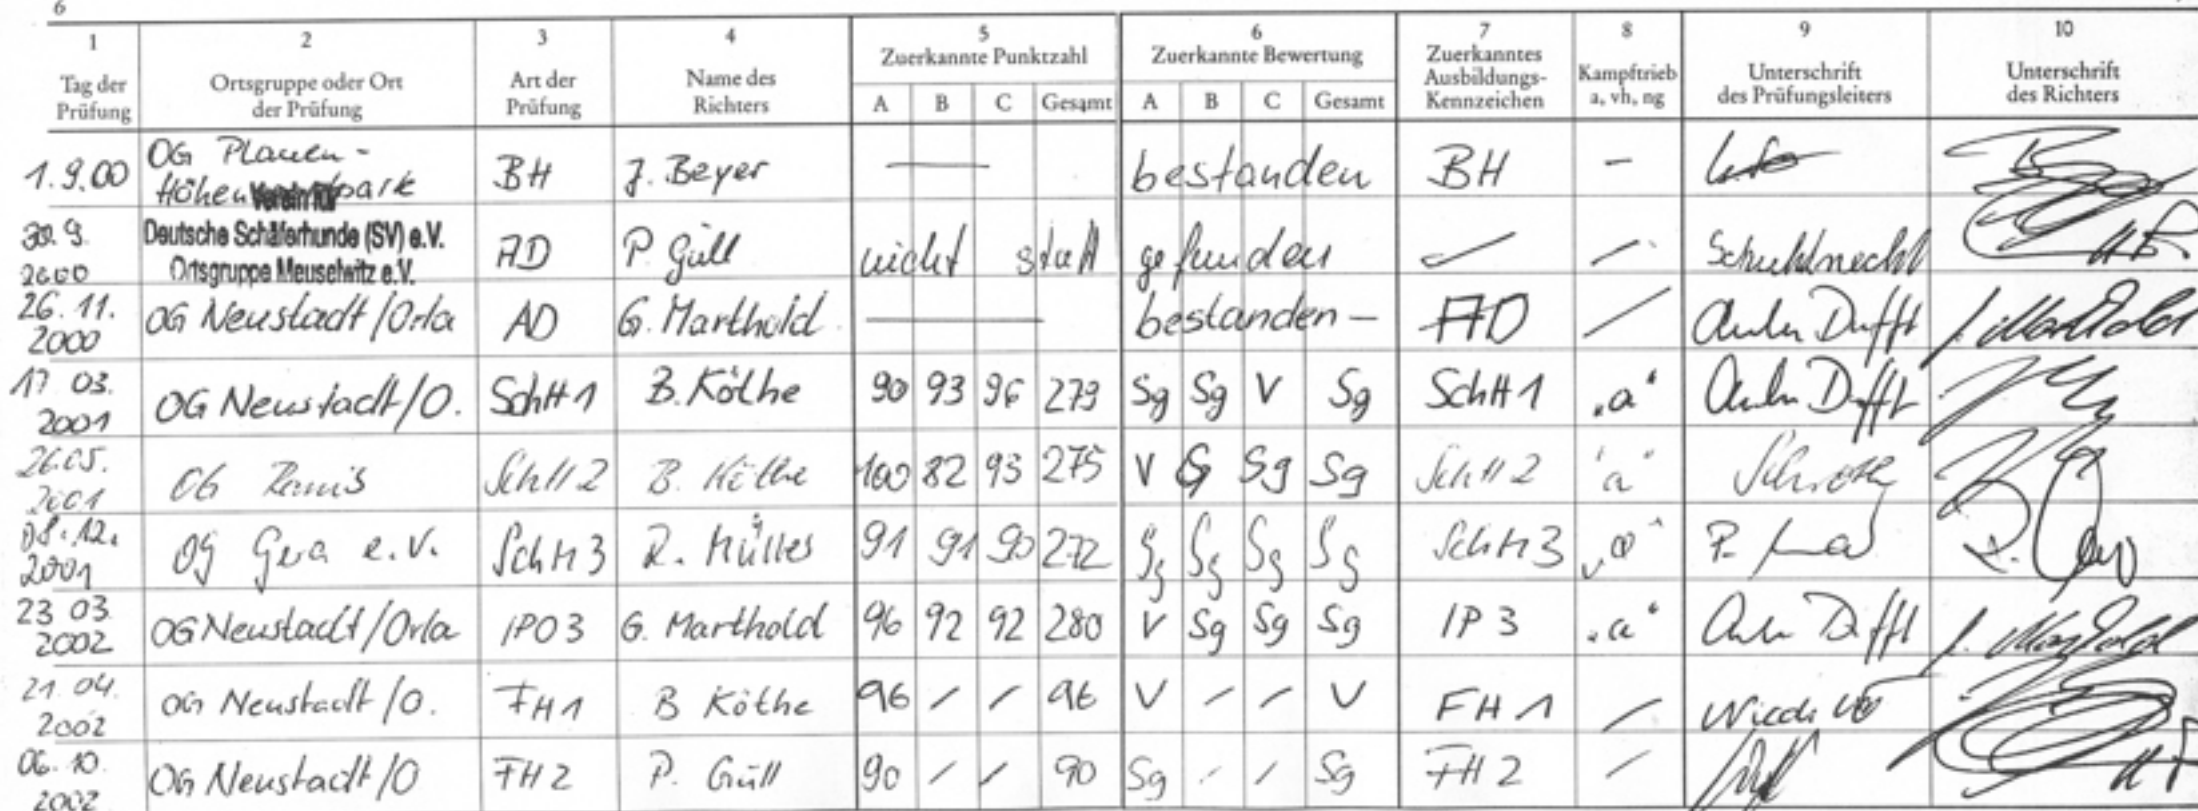 6
1 2 3 4 5 6 7 8 9 10
Tag der Prüfung
Ortsgruppe oder Ort der Prüfung
Art der Prüfung
Name des Richters
Zuerkannte Punktzahl
A B C Gesamt
Zuerkannte Bewertung
A B C Gesamt
Zuerkanntes Ausbildungs-Kennzeichen
Kampftrieb a, vh, ng
Unterschrift des Prüfungsleiters
Unterschrift des Richters
1.9.00 OG Plauen - BH J. Beyer — bestanden BH –
Verein für
30.9. 2000 Deutsche Schäferhunde (SV) e.V. AD P. Güll nicht statt gefunden / / Schuhknecht
Ortsgruppe Meuselwitz e.V.
26.11. 2000 OG Neustadt/Orla AD G. Marthold — bestanden – AD / Dufft
17 03. 2001 OG Neustadt/O. SchH1 B. Köthe 90 93 96 279 Sg Sg V Sg SchH1 „a“ Dufft
26.05. 2001 OG Ranis SchH2 B. Köthe 100 82 93 275 V G Sg Sg SchH2 "a"
08.12. 2001 OG Gera e.V. SchH3 R. Müller 91 91 90 272 Sg Sg Sg Sg SchH3 „a“
23 03. 2002 OG Neustadt/Orla IPO3 G. Marthold 96 92 92 280 V Sg Sg Sg IP 3 „a“ Dufft
21.04. 2002 OG Neustadt/O. FH1 B Köthe 96 / / 96 V / / V FH1 /
06.10. 2002 OG Neustadt/O FH2 P. Güll 90 / / 90 Sg / / Sg FH2 /